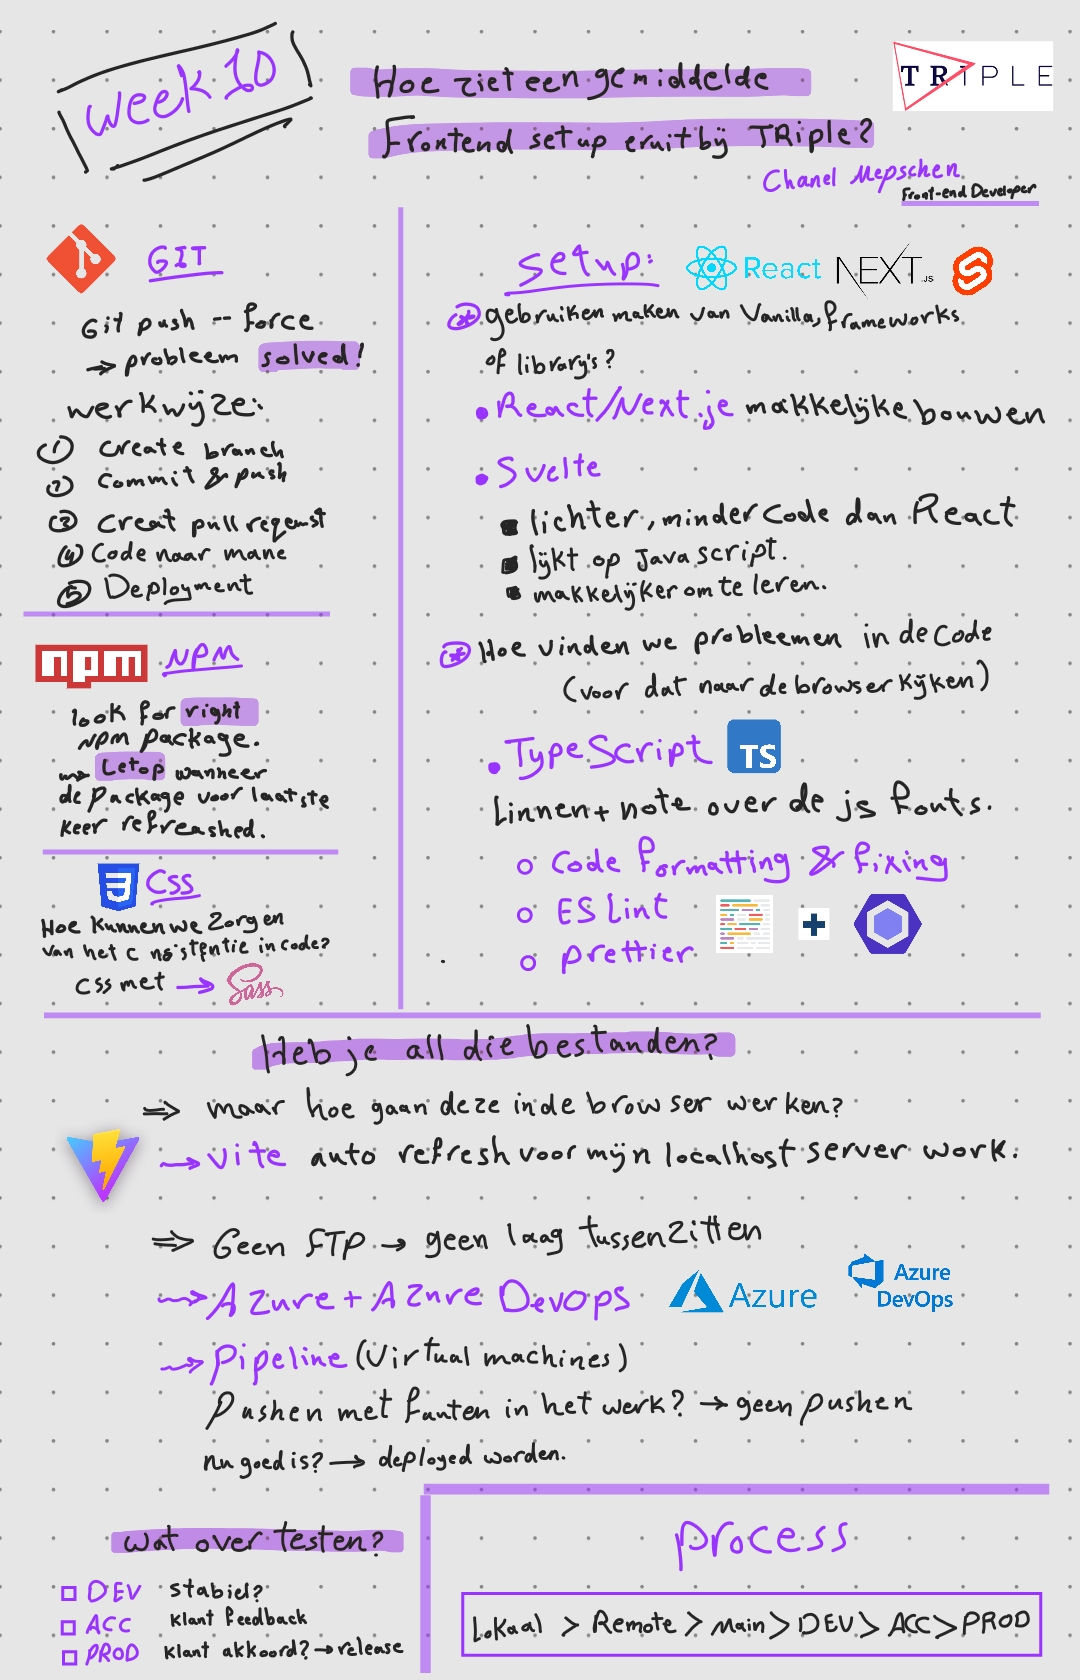 week 10
Hoe ziet een gemiddelde
Frontend setup eruit bij TRiple?
TRIPLE
Chanel Mepschen
Front-end Developer
GIT
Git push -- force
→ probleem solved!
werkwijze:
1 Create branch
2 Commit & push
3 Creat pull reqeust
4 Code naar mane
5 Deployment
npm NPM
look for right
NPM package.
⇝ Let op wanneer
de package voor laatste
keer refreashed.
3 CSS
Hoe kunnen we zorgen
van het c nsistentie in code?
CSS met → Sass
Setup: React NEXT.JS
* gebruiken maken van Vanilla, frameworks
of library's?
• React/Next.je makkelijke bouwen
• Svelte
▪ lichter, minder code dan React
▪ lijkt op Javascript.
▪ makkelijker om te leren.
* Hoe vinden we problemen in de code
(voor dat naar de browser kijken)
• TypeScript TS
Linnen + note over de js fouts.
○ Code formatting & fixing
○ ES lint
○ prettier
Heb je all die bestanden?
⇒ maar hoe gaan deze in de browser werken?
→ vite auto refresh voor mijn localhost server work.
⇒ Geen FTP → geen laag tussen zitten
⇝ Azure + Azure Devops Azure Azure DevOps
⇝ Pipeline (Virtual machines)
Pushen met fauten in het werk? → geen pushen
nu goed is? → deployed worden.
wat over testen?
□ DEV stabiel?
□ ACC klant feedback
□ PROD klant akkoord? → release
process
Lokaal > Remote > main > DEV > ACC > PROD